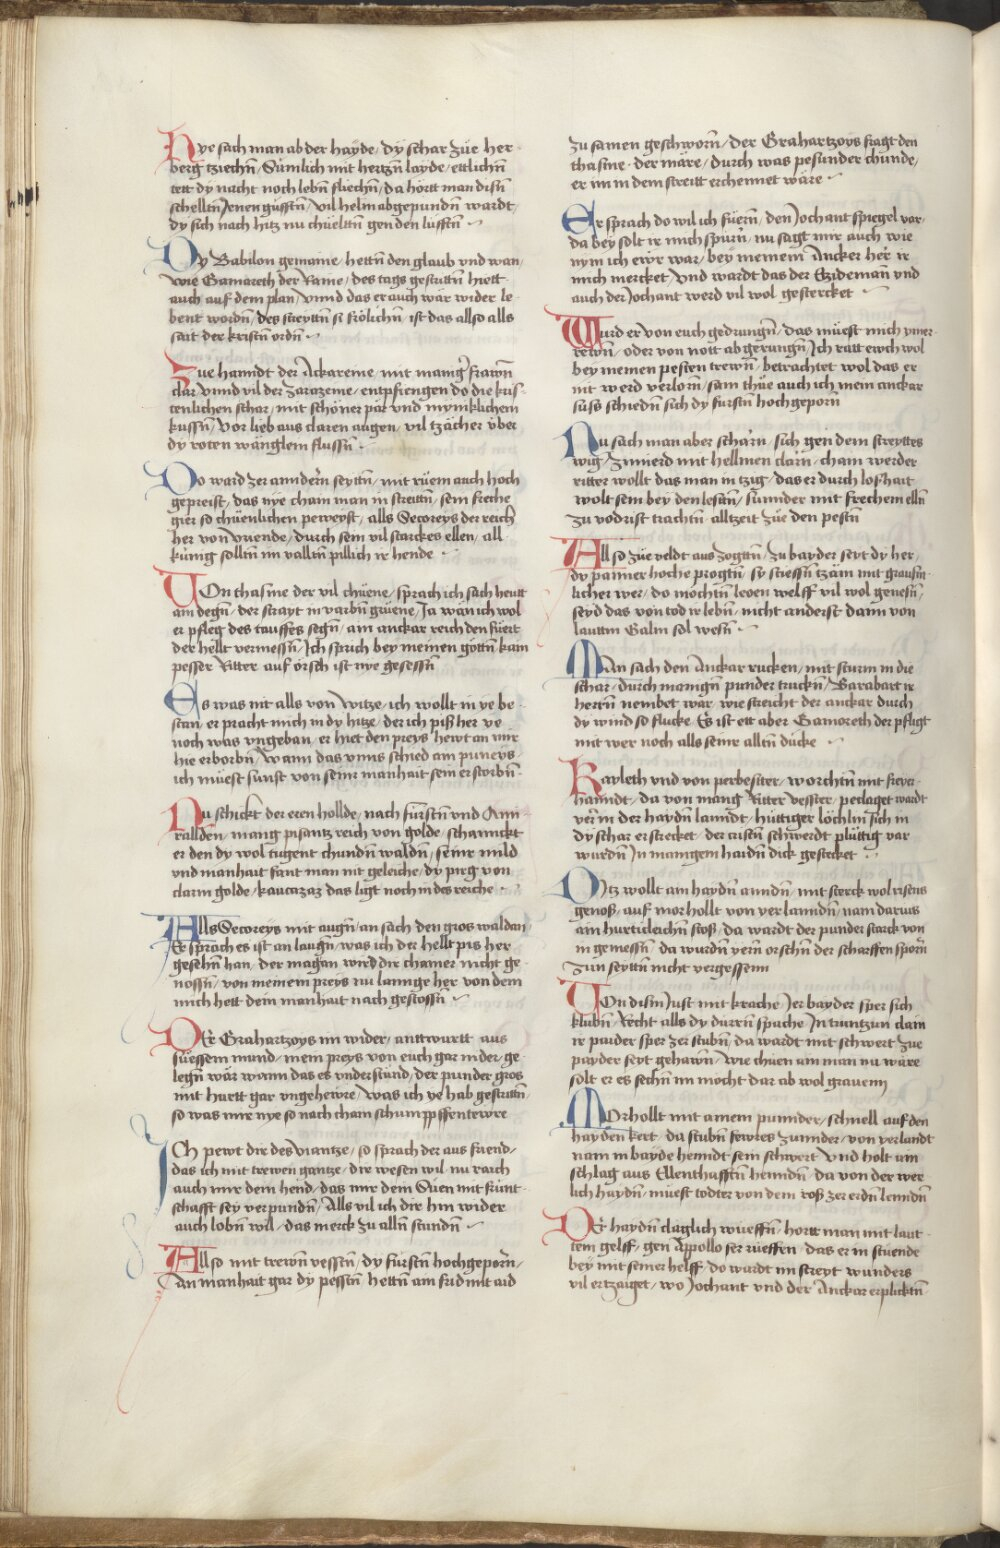 Hye sach man ab der hayde / dy schar zue her
berg tziechñ / Sümlich mit hertzñ layde / ettlichñ
tett dy nacht noch lebñ fliechñ / da hortt man disñ
schelltñ Jenen güfftñ / vil helm abgepundñ wardt /
dy sich nach hitz nu chüeltñ gen den lüfftñ
Dy Babilon gemaine / hettñ den glaub vnd wan /
wie Gamareth der Raine / des tags gestritñ hiett
auch auf dem plan / vnnd das er auch wär wider le
bent wordñ / des streyttñ si frölichñ / ist das allso alls
sait der kristñ ordñ
Zue hanndt der Ackareine / mit manigr frawñ
clar / vnnd vil der Sarazeine / entpfiengen do die kris
tenlichen schar / mit schöner par vnd mynniklichem
kussñ / vor lieb aus claren augen / vil tzächer vber
dy roten wänglein flussñ
Do ward zer anndern seyttñ / mit rüem auch hoch
gepreist / das nye chain man in streittñ / sein freche
gier so chüenlichen peweyst / alls Secoreys der reich
her von vriende / durch sein vil starckes ellen / all
künig solltñ im valltñ pillich ir hende
Von thasine der vil chüene / sprach ich sach heutt
ain degñ / der strayt in varbñ grüene / Ja wän ich wol
er pfleg des tauffes segñ / ain anckar reich den füert
der hellt vermessñ / Ich sprich bey meinen gottñ kain
pesser Ritter auf örsch ist nye gesessñ
Es was nit alls von witze / ich wollt in ye be
stan / er pracht mich in dy hitze / der ich piß her ye
noch was vngeban / er hiet den preys hewt an mir
hie erborbñ / Wann das vnns schied ain puneys
ich müest sunst von seinr manhait sein erstorbñ
Nu schickt der eren hollde / nach fürstñ vnd Ami
ralldñ / manig pisantz reich von golde / schannckt
er den dy wol tugent chundñ waldñ / seinr mild
vnd manhait fant man nit geleiche / dy pirg von
clarm golde / kaucazaz das ligt noch in des reiche
Alls Secoreys mit augñ / an sach den gros waldan /
Er sprach es ist an laugñ / was ich der hellt pis her
gesehñ han / der magan wird dir chainer nicht ge
nossñ / von meinem preys nu lannge her von dem
mich hett dein manhait nach gestossñ
Der Grahartzoys im wider / anttwurtt aus
süessem mund / mein preys von euch gar nider / ge
legñ wär wann das es vnderstund / der punder gros
mit huertt gar vngehewre / Was ich ye hab gestritñ
so was mir nye so nach cham schumppffentewre
Ich pewt dir des viantze / so sprach der aus friend /
das ich mit trewen gantze / dir wesen wil nu raich
auch mir dein hend / das mir dein Süen mit frünt
schafft sey verpundñ / Alls vil ich dir hin wider
auch lobñ wil / das merck zu allñ stundñ
Allso mit trewñ vesstñ / dy fürstñ hochgeporñ /
An manhait gar dy pesstñ / hettñ ain frid mit aid
zu samen geschworñ / der Grahartzoys fragt den
thasine / der märe / durch was pesunder chunde /
er im in dem streitt erchennet wäre
Er sprach do wil ich füerñ / den Jochant spiegel var /
da bey solt ir mich spürñ / nu sagt mir auch wie
nym ich ewr war / bey meinem Ancker her ir
mich mercket / vnd wardt das der Ezideman vnd
auch der Jochant werd vil wol gestercket
Wurd er von euch gedrungñ / das müest mich ymer
rewñ / oder von nott ab gerungñ / Ich ratt ewch wol
bey meinen pesten trewñ / betrachtet wol das er
nit werd verlorñ / sam thüe auch ich mein anckar
suss schiedñ sich dy fürstñ hochgeporñ
Nu sach man aber scharñ / sich gen dem streyttes
wig / zimierd mit hellmen clarñ / cham werder
ritter wollt das man in tzig / das er durch loshait
wolt sein bey den lestñ / sunnder mit frechem ellñ
zu vodrist trachtñ alltzeit züe den pestñ
Allso züe veldt aus zogttñ / zu bayder seyt dy her /
dy panner hoche progtñ / sy stiessñ tzäm mit grausñ
licher wer / do möchtñ leoen welff vil wol genesñ /
seyd das von tod ir lebñ / nicht anderst dann von
lauttm Galm sol wesñ
Man sach den Anckar rucken / mit sturm in die
schar / durch manigñ punder truckñ / Barabart ir
herrñ nembet war / wie streicht der anckar durch
dy wind so flucke / Es ist ett aber Gamoreth der pfligt
mit wer noch alls seinr alltñ ducke
Kayleth vnd von perbester / worchtñ mit frever
hanndt / da von manig Ritter vesster / peclaget wardt
verñ in der haydñ lanndt / hüttiger löchlin sich in
dy schar er strecket / der cristñ schwerdt plüttig var
wurdñ In manigem haidñ dick gestecket
Otz wollt ain haydñ anndñ / mit sterck wol risens
genoß / auf morhollt von yerlanndñ / nam daraus
ain hurttcleichñ stoß / da wardt der punder starck von
in gemessñ / da wurdñ yern orschñ der scharffen sporñ
zun seyttñ nicht vergessenn
Von disñ Just mit krache / Jer bayder sper sich
klubñ / Recht alls dy dürrñ spache / In trunzun clain
ir paider sper zer stubñ / da wardt mit schwert zue
payder seyt gehawñ / wie chüen ain man nu wäre
solt er es sechñ im möcht dar ab wol grauenn
Morhollt mit ainem punnder / schnell auf den
hayden kert / da stubñ fewres zunnder / von yerlandt
nam in bayde henndt sein schwert vnd holt ain
schlag aus Ellenthafftñ henndñ / da von der wer
lich haydñ / müest todter von dem roß zer erdñ lenndñ
Der haydñ claglich wüeffñ / hortt man mit laut
tem gelff / gen Appollo ser rüeffen / das er in stüende
bey mit seiner helff / do wardt im streyt wunders
vil ertzaiget / wo Jochant vnd der Anckar erplicktñ